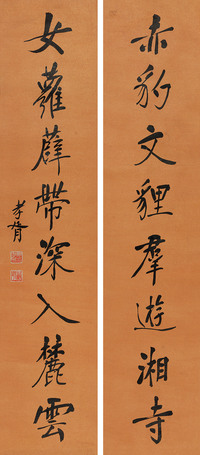 赤豹文貍羣遊湘寺
女蘿薜帶深入麓雲
孝胥